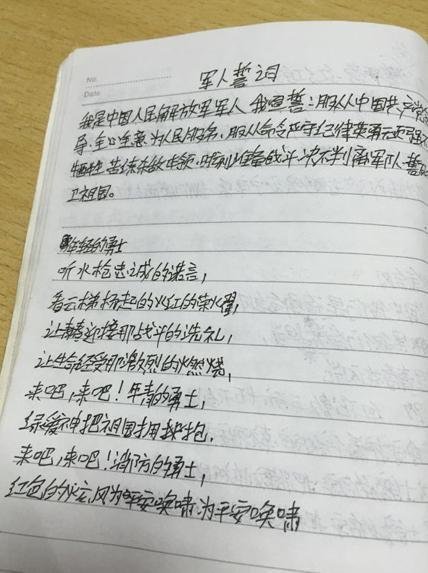 军人誓词
No.
Date
我是中国人民解放军军人 我宣誓：服从中国共产党
导，全心全意为人民服务，服从命令严守纪律英勇顽强不
牺牲，苦练杀敌本领，时刻准备战斗决不判离军队誓
卫祖国。
年轻的勇士
听水枪忠诚的诺言，
看云梯扬起的火红的
让青春迎接那战斗的洗礼，
让生命经受那激烈的燃烧，
来吧，来吧！年青的勇士，
绿 神把祖国拥抱，
来吧，来吧！消防的勇士，
红色的 风为平安唤啸为平安唤啸